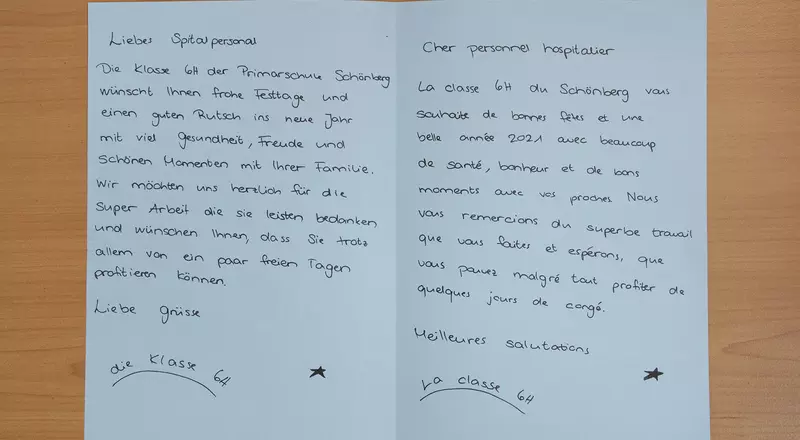 Liebes Spitalpersonal
Die Klasse 6H der Primarschule Schönberg
wünscht Ihnen frohe Festtage und
einen guten Rutsch ins neue Jahr
mit viel Gesundheit, Freude und
schönen Momenten mit Ihrer Familie.
Wir möchten uns herzlich für die
super Arbeit die sie leisten bedanken
und wünschen Ihnen, dass Sie trotz
allem von ein paar freien Tagen
profitieren können.
Liebe Grüsse
die Klasse 6H
Cher personnel hospitalier
La classe 6H du Schönberg vous
souhaite de bonnes fêtes et une
belle année 2021 avec beaucoup
de santé, bonheur et de bons
moments avec vos proches. Nous
vous remercions du superbe travail
que vous faites et espérons, que
vous pouvez malgré tout profiter de
quelques jours de congé.
Meilleures salutations
La classe 6H